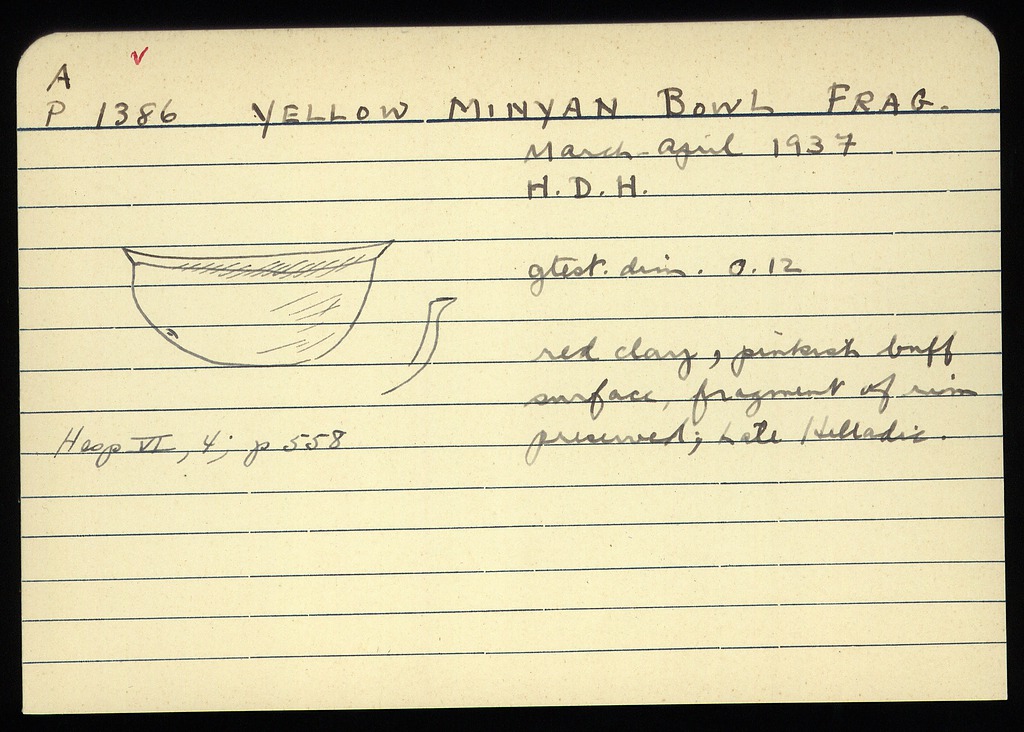 A
P 1386 YELLOW MINYAN BOWL FRAG.
March-April 1937
H. D. H.
gtest. dim. 0.12
red clay, pinkish buff
surface, fragment of rim
preserved; Late Helladic.
Hesp VI, 4; p 558